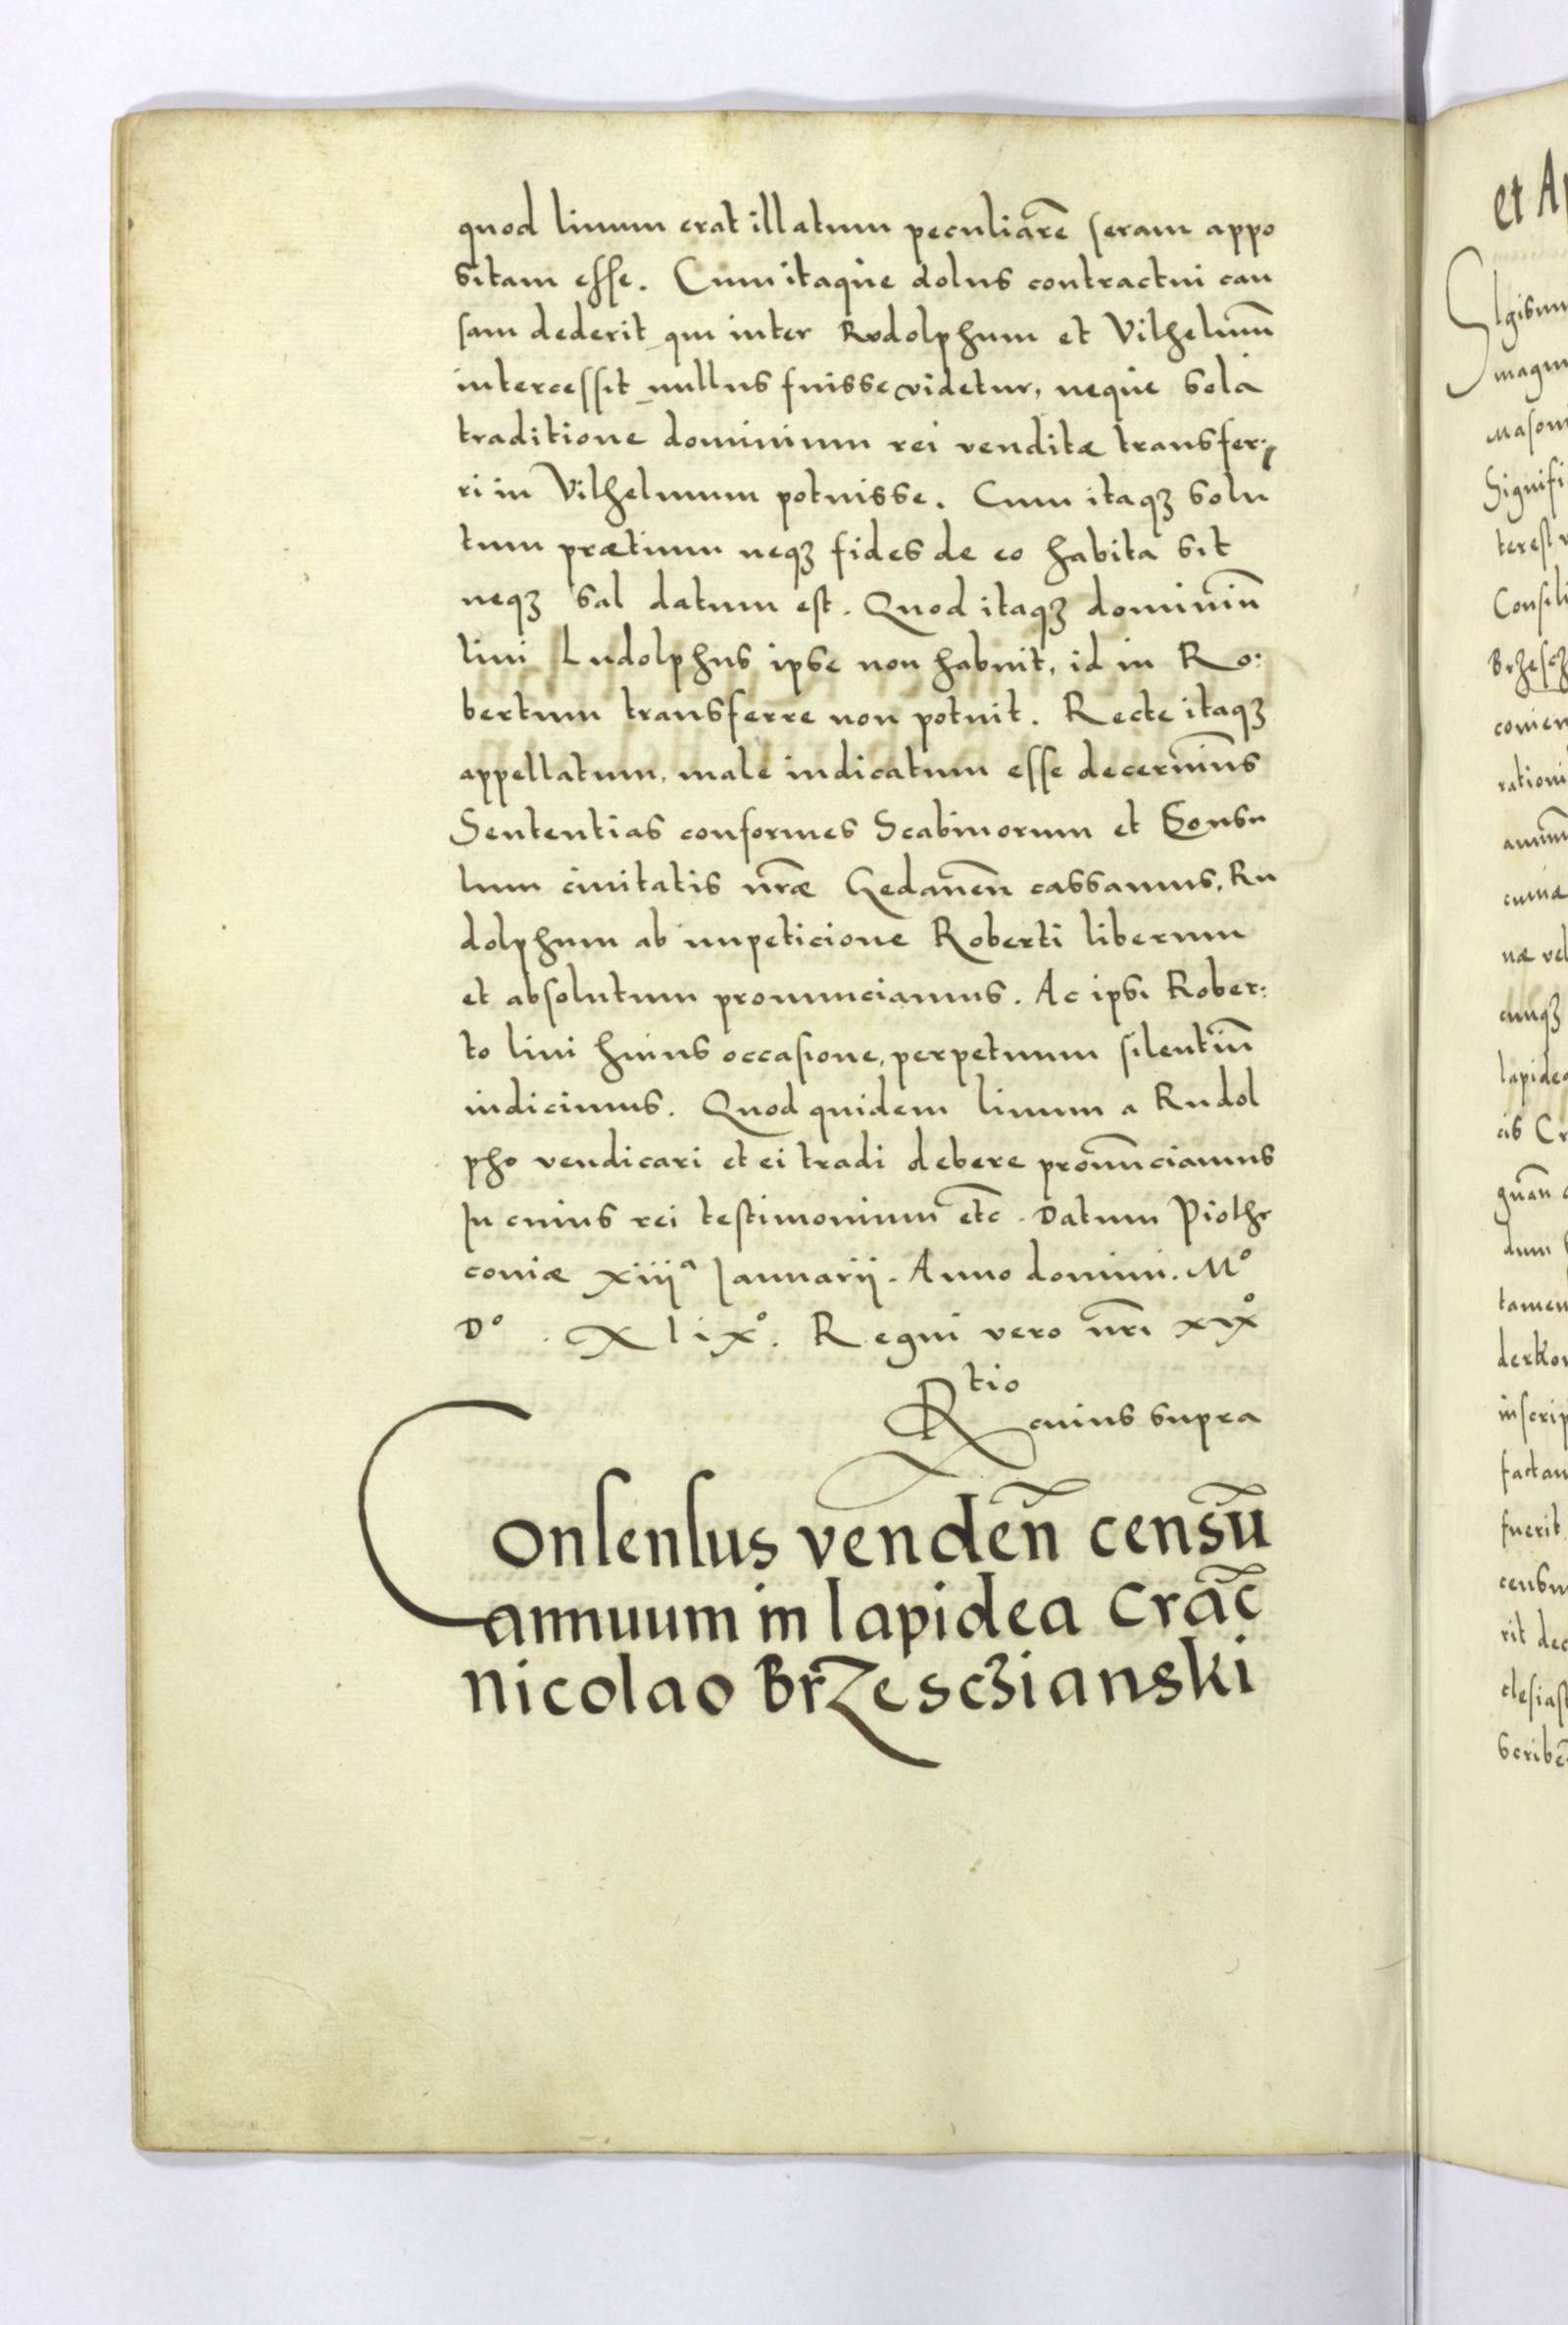 quod linum erat illatum peculiarē seram appo
sitam esse. Cum itaque dolus contractui cau
sam dederit qui inter Rodolphum et Vilhelmū
intercessit nullus fuisse videtur, neque sola
traditione dominium rei venditæ transfer:
ri in Vilhelmum potuisse. Cum itaqꝫ solu
tum prætium neqꝫ fides de eo habita sit
neqꝫ sal datum est. Quod itaqꝫ dominiū
lini Ludolphus ipse non habuit, id in Ro:
bertum transferre non potuit. Recte itaqꝫ
appellatum, male iudicatum esse decernim̄s
Sententias conformes Scabinorum et Consu
lum ciuitatis nr̄æ Gedanen̄ cassamus, Ru
dolphum ab impeticione Roberti liberum
et absolutum pronunciamus. Ac ipsi Rober:
to lini huius occasione, perpetuum silentiū
indicimus. Quod quidem linum a Rudol
pho vendicari et ei tradi debere pronūnciamus
In cuius rei testimonium etc̄. Datum Piothr
coniæ xiiijᵃ Januarij. Anno domini. Mº
Dº. XLixº. Regni vero nr̄i xixº
Rtio cuius supra
Consensus venden̄ censū
annuum in lapidea Crac̄
Nicolao Brzesczianski
et A
Sigism
magnu
Signifi
terest
Consili
Brzescz
rationi
næ vel
cunqꝫ
lapidea
cis Cr
dum
tamen
derkow
inscrip
factam
fuerit
censu
rit dec
clesiast